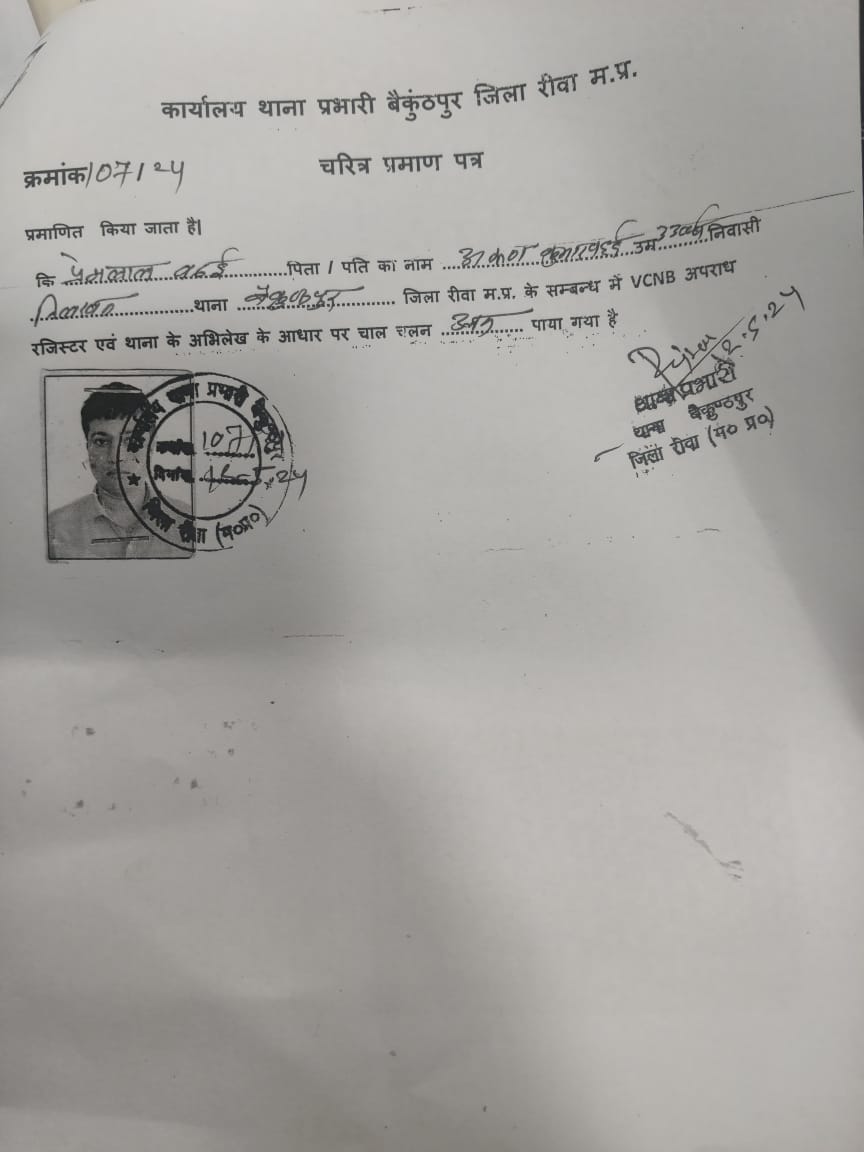 कार्यालय थाना प्रभारी बैकुंठपुर जिला रीवा म.प्र.
क्रमांक/107/24 चरित्र प्रमाण पत्र
प्रमाणित किया जाता है।
कि प्रेमलाल बढई पिता / पति का नाम उम्र 33 वर्ष निवासी
थाना बैकुण्ठपुर जिला रीवा म.प्र. के सम्बन्ध में VCNB अपराध
रजिस्टर एवं थाना के अभिलेख के आधार पर चाल चलन पाया गया है
12.5.24
थाना प्रभारी
थाना बैकुण्ठपुर
जिला रीवा (म० प्र०)
कार्यालय थाना प्रभारी बैकुण्ठपुर
क्रमांक 107
दिनांक 5.24
जिला रीवा (म०प्र०)